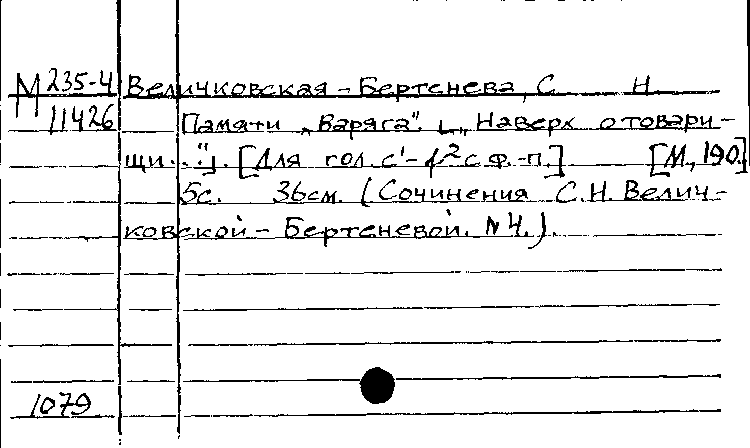 М 235-4 Величковская-Бертенева, С. Н.
11426 Памяти „Варяга". [„Наверх о товари-
щи..."]. [Для гол. c¹-f² с ф.-п.] [М., 190.]
5с. 36см. (Сочинения С.Н. Велич-
ковской-Бертеневой. №4.).
1079